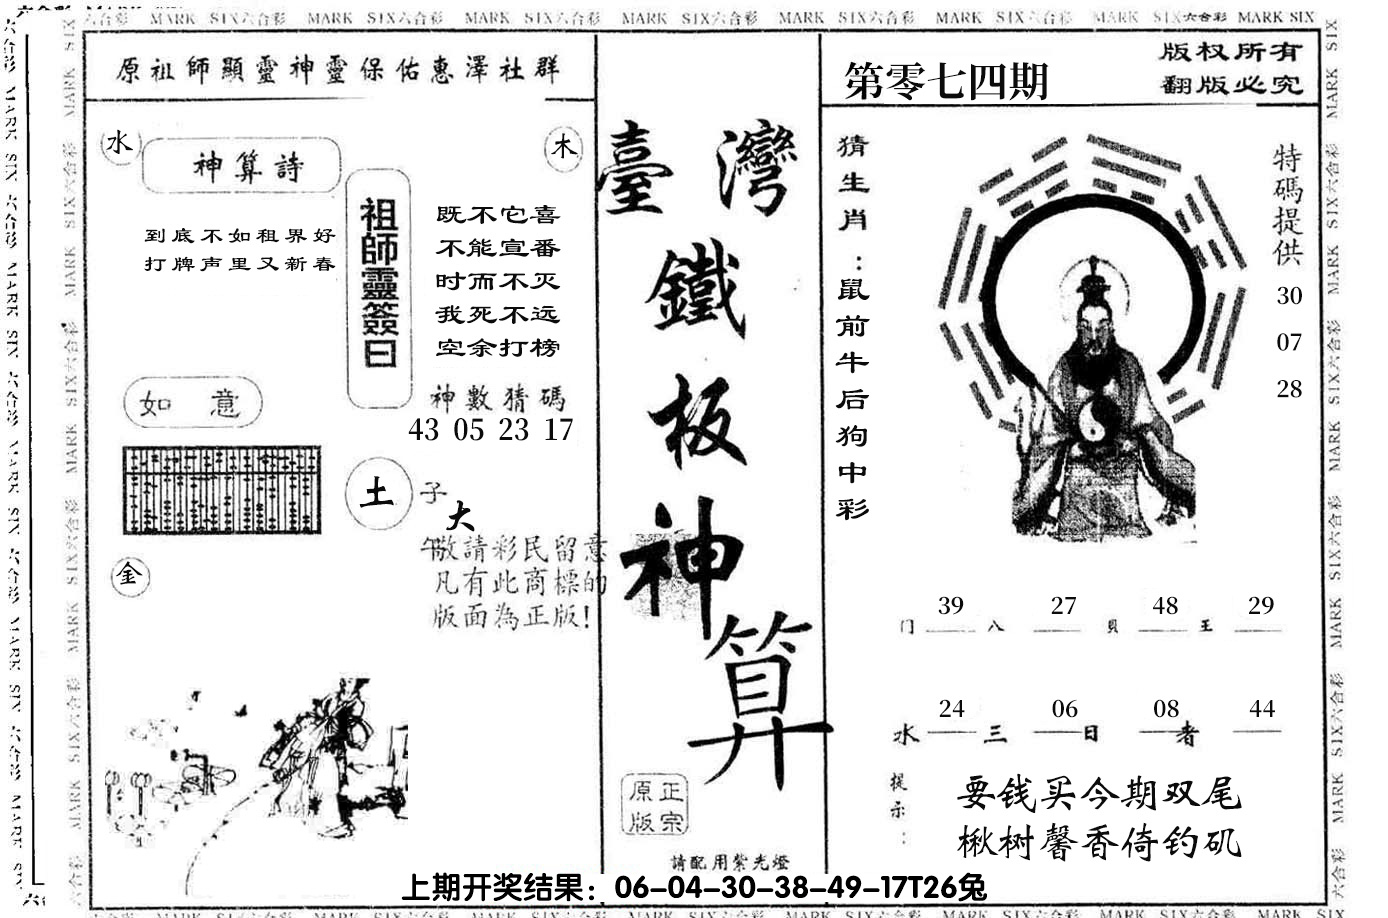 MARK SIX六合彩 MARK SIX六合彩 MARK SIX六合彩 MARK SIX六合彩 MARK SIX六合彩 MARK SIX六合彩 MARK SIX六合彩 MARK SIX
原祖師顯靈神靈保佑惠澤社群
水
神算詩
到底不如租界好
打牌声里又新春
木
祖師靈簽曰
既不它喜
不能宣番
时而不灭
我死不远
空余打榜
神數猜碼
43 05 23 17
如 意
土
子
大
午
敬請彩民留意
凡有此商標的
版面為正版!
金
臺灣
鐵
板
神
算
原正
版宗
請配用紫光燈
第零七四期
版权所有
翻版必究
猜生肖:鼠前牛后狗中彩
特碼提供
30
07
28
39 27 48 29
门 八 貝 王
24 06 08 44
水 三 日 者
提示:
要钱买今期双尾
楸树馨香倚钓矶
上期开奖结果：06-04-30-38-49-17T26兔